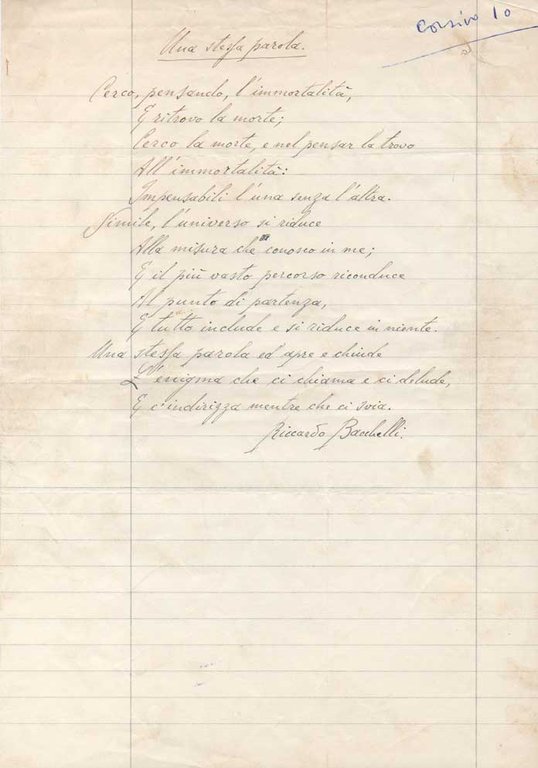 corsivo 10
Una stessa parola.
Cerco, pensando, l'immortalità,
E ritrovo la morte;
Cerco la morte, e nel pensar la trovo
All'immortalità:
Impensabili l'una senza l'altra.
Simile, l'universo si riduce
Alla misura che conosco in me;
E il più vasto percorso riconduce
Al punto di partenza,
E tutto include e si riduce in niente.
Una stessa parola ed apre e chiude
L'enigma che ci chiama e ci delude,
E c'indirizza mentre che ci svia.
Riccardo Bacchelli.